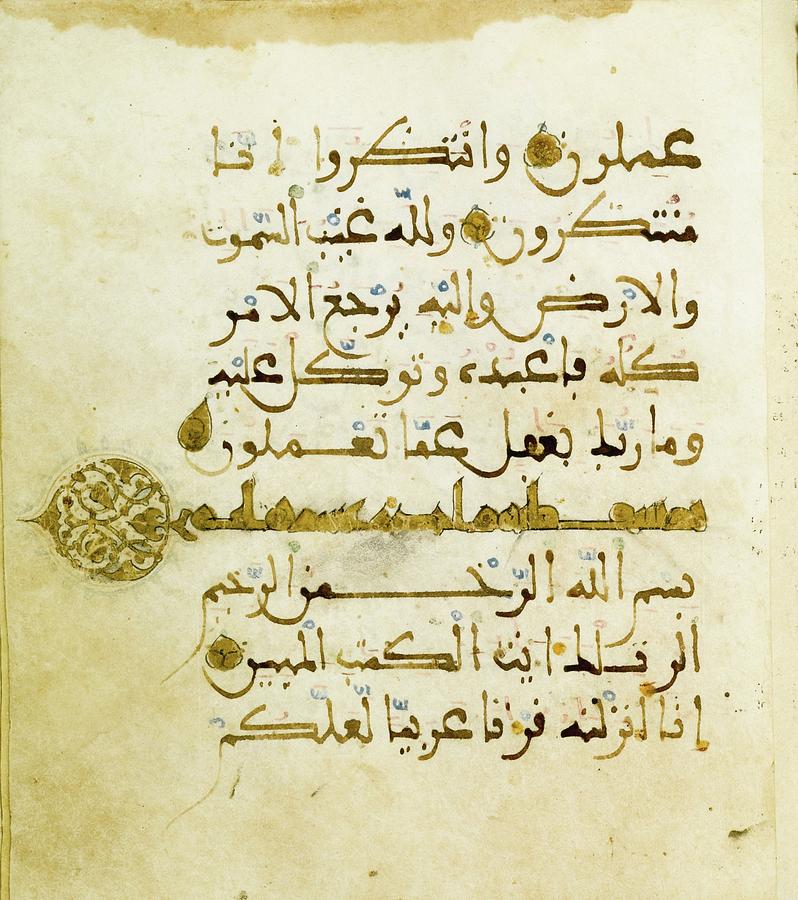 عملون وانتظروا انا
منتظرون ولله غيب السموت
والارض واليه يرجع الامر
كله فاعبده وتوكل عليه
وما ربك بغفل عما تعملون
بسم الله الرحمن الرحيم
الر تلك ايت الكتب المبين
انا انزلنه قرءنا عربيا لعلكم